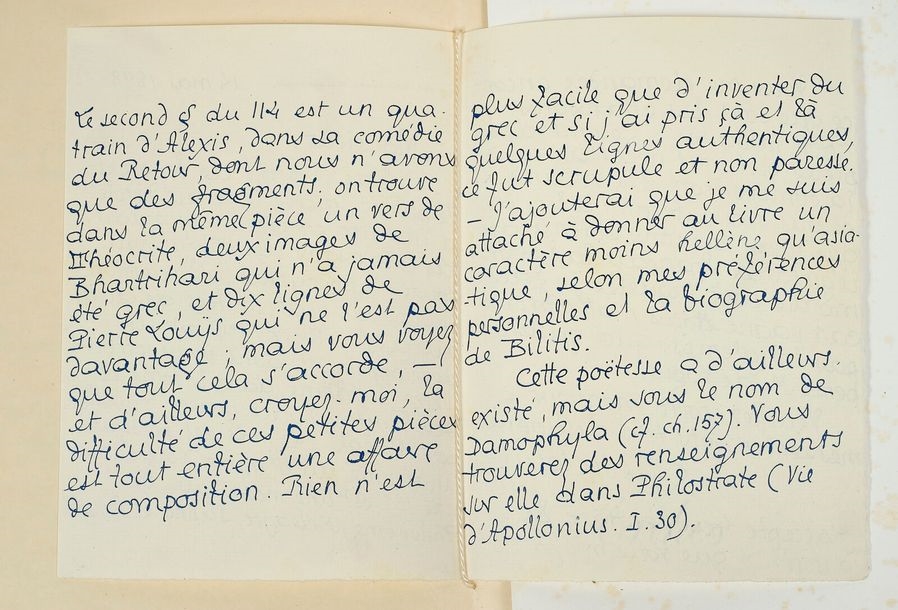 Le second § du 114 est un qua-
train d'Alexis, dans sa comédie
du Retour, dont nous n'avons
que des fragments; on trouve
dans la même pièce un vers de
Théocrite, deux images de
Bhartrihari qui n'a jamais
été grec, et dix lignes de
Pierre Louÿs qui ne l'est pas
davantage; mais vous voyez
que tout cela s'accorde, —
et d'ailleurs, croyez-moi, la
difficulté de ces petites pièces
est tout entière une affaire
de composition. Rien n'est
plus facile que d'inventer du
grec et si j'ai pris çà et là
quelques lignes authentiques,
ce fut scrupule et non paresse.
— J'ajouterai que je me suis
attaché à donner au livre un
caractère moins hellène qu'asia-
tique, selon mes préférences
personnelles et la biographie
de Bilitis.
Cette poëtesse a d'ailleurs
existé, mais sous le nom de
Damophyla (cf. ch. 157). Vous
trouverez des renseignements
sur elle dans Philostrate (Vie
d'Apollonius. I. 30).